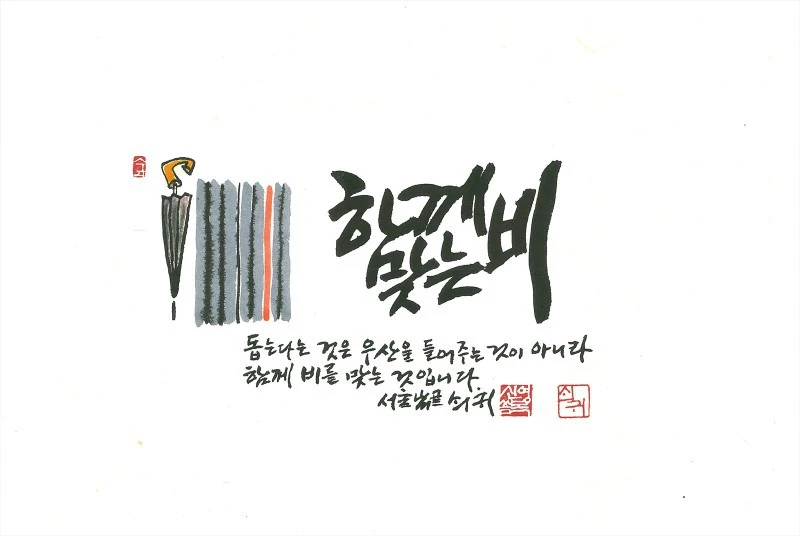 함께
맞는
비
돕는다는 것은 우산을 들어주는 것이 아니라
함께 비를 맞는 것입니다.
쇠귀